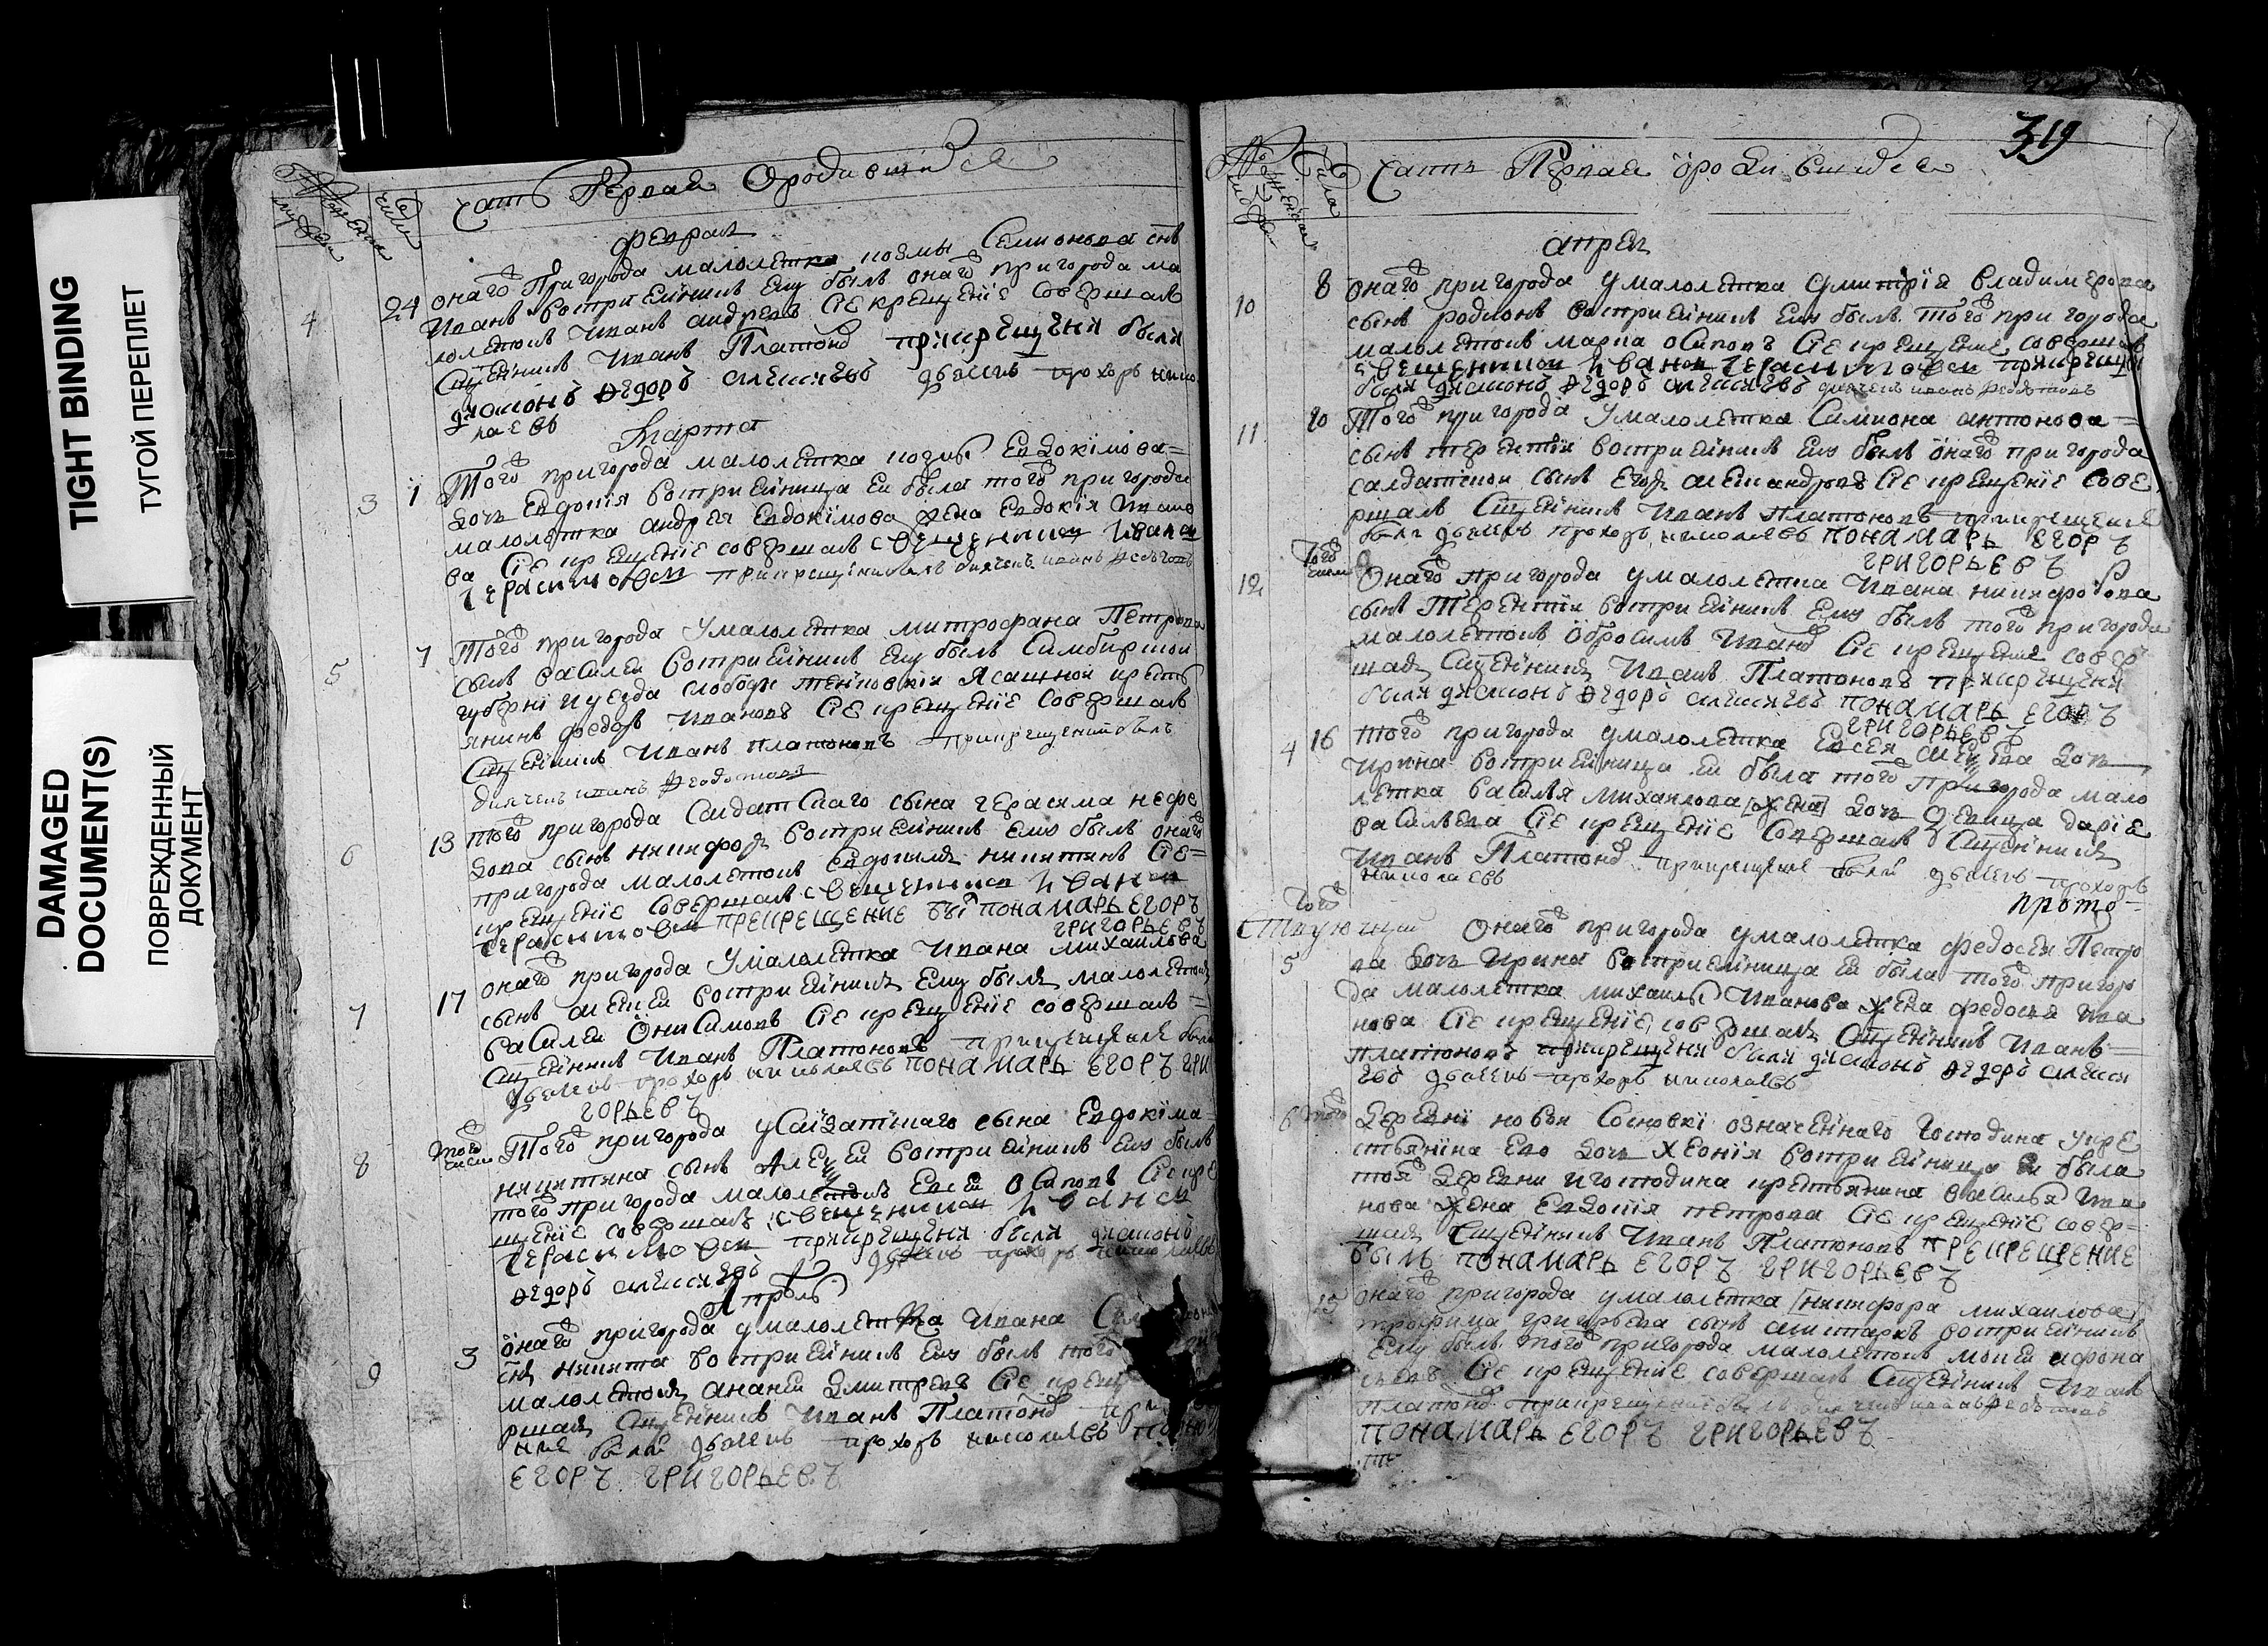 TIGHT BINDING
ТУГОЙ ПЕРЕПЛЕТ
DAMAGED
DOCUMENT(S)
ПОВРЕЖДЕННЫЙ
ДОКУМЕНТ
Часть Первая О родившихся
феврал
4 24 онаго Пригорода малолетка Семионова снъ
Иванъ восприемникъ ему былъ онаго пригорода ма
лолетокъ Иванъ андреевъ Сие крещение совершалъ
Сщенникъ Иванъ Платоновъ прикрещении были
диаконъ Федоръ алексеевъ дьячекъ прохоръ нико
лаевъ
Марта
3 1 Того пригорода малолетка Евдокимова
дочь Евдокия восприемница ей была того пригорода
малолетка андрея Евдокимова жена Евдокия Ивано
ва Сие крещение совершалъ священникъ Иванъ
Герасимовъ прикрещении былъ дьячекъ иванъ Федотовъ
5 7 Того пригорода У малолетка митрофана Петрова
сынъ василей восприемникъ ему былъ Симбирской
губерни уезда слободы ясашной кресть
янинъ федоръ Ивановъ Сие крещение совершалъ
Сщенникъ Иванъ платоновъ прикрещении былъ
дьячекъ иванъ Федотовъ
6 13 того пригорода Салдатскаго сына герасима нефе
дова сынъ никифоръ восприемникъ ему былъ онаго
пригорода малолетокъ никитинъ Сие
крещение совершалъ священникъ Иванъ
Герасимовъ ПРЕКРЕЩЕНИЕ ПОНАМАРЬ ЕГОРЪ
ГРИГОРЬЕВЪ
7 17 онаго пригорода У малолетка Ивана михаилова
сынъ алексей восприемникъ ему былъ малолетокъ
василей Онисимовъ Сие крещение совершалъ
Сщенникъ Иванъ Платоновъ прикрещении были
дьячекъ прохоръ николаевъ ПОНАМАРЬ ЕГОРЪ ГРИ
ГОРЬЕВЪ
8 того числа Того пригорода у Салдатскаго сына Евдокима
никитина сынъ Алексей восприемникъ ему былъ
того пригорода малолетокъ Евсей Осиповъ Сие кре
щение совершалъ священникъ Иванъ
Герасимовъ прикрещении были диаконъ
Федоръ алексеевъ дьячекъ прохоръ николаевъ
Апрель
9 3 онаго пригорода у малолетка Ивана
снъ никита восприемникъ ему былъ того
малолетокъ ананей дмитревъ Сие крещ
ршалъ Сщенникъ Иванъ Платоновъ
ние были дьячекъ прохоръ николаевъ
ЕГОРЪ ГРИГОРЬЕВЪ
319
Часть Первая о родившихся
апрел
10 8 онаго пригорода у малолетка дмитрия владимерова
сынъ родионъ восприемникъ ему былъ того пригорода
малолетокъ марка осиповъ Сие крещение совершалъ
священникъ Иванъ Герасимовъ прикрещении
были диаконъ Федоръ алексеевъ дьячекъ иванъ федотовъ
11 10 Того пригорода У малолетка Симиона антонова
сынъ терентий восприемникъ ему былъ онаго пригорода
салдатской сынъ Егоръ александровъ Сие крещение сове
ршалъ Сщенникъ Иванъ платоновъ прикрещении
были дьячекъ прохоръ николаевъ ПОНАМАРЬ ЕГОРЪ
ГРИГОРЬЕВЪ
12 того числа Онаго пригорода у малолетка Ивана никифорова
сынъ Терентий восприемникъ ему былъ того пригорода
малолетокъ Иванъ Сие крещение совер
шалъ Сщенникъ Иванъ Платоновъ прикрещении
были диаконъ Федоръ алексеевъ ПОНАМАРЬ ЕГОРЪ
ГРИГОРЬЕВЪ
4 16 того пригорода у малолетка Евсея дочь
Ирина восприемница ей была того пригорода мало
летка василья михаилова [жена] дочь девица дария
васильева Сие крещение совершалъ Сщенникъ
Иванъ Платоновъ прикрещении были дьячекъ прохоръ
николаевъ
прото
5 Онаго пригорода у малолетка федосея Петро
ва дочь Ирина восприемница ей была того пригоро
да малолетка михаила Иванова жена федосья Ива
нова Сие крещение совершалъ Сщенникъ Иванъ
платоновъ прикрещении были диаконъ Федоръ алекси
евъ дьячекъ прохоръ николаевъ
6 того деревни новой Сосновки означеннаго господина у кре
стьянина дочь Хеония восприемница ей была
тоя деревни и господина крестьянина василья Ива
нова жена Евдокия петрова Сие крещение совер
шалъ Сщенникъ Иванъ Платоновъ ПРЕКРЕЩЕНИЕ
БЫЛЪ ПОНАМАРЬ ЕГОРЪ ГРИГОРЬЕВЪ
онаго пригорода у малолетка [никифора михаилова]
трофима григорьева сынъ восприемникъ
ему былъ того пригорода малолетокъ мокей афона
сьевъ Сие крещение совершалъ Сщенникъ Иванъ
платоновъ прикрещении былъ дьячекъ иванъ федотовъ
ПОНАМАРЬ ЕГОРЪ ГРИГОРЬЕВЪ